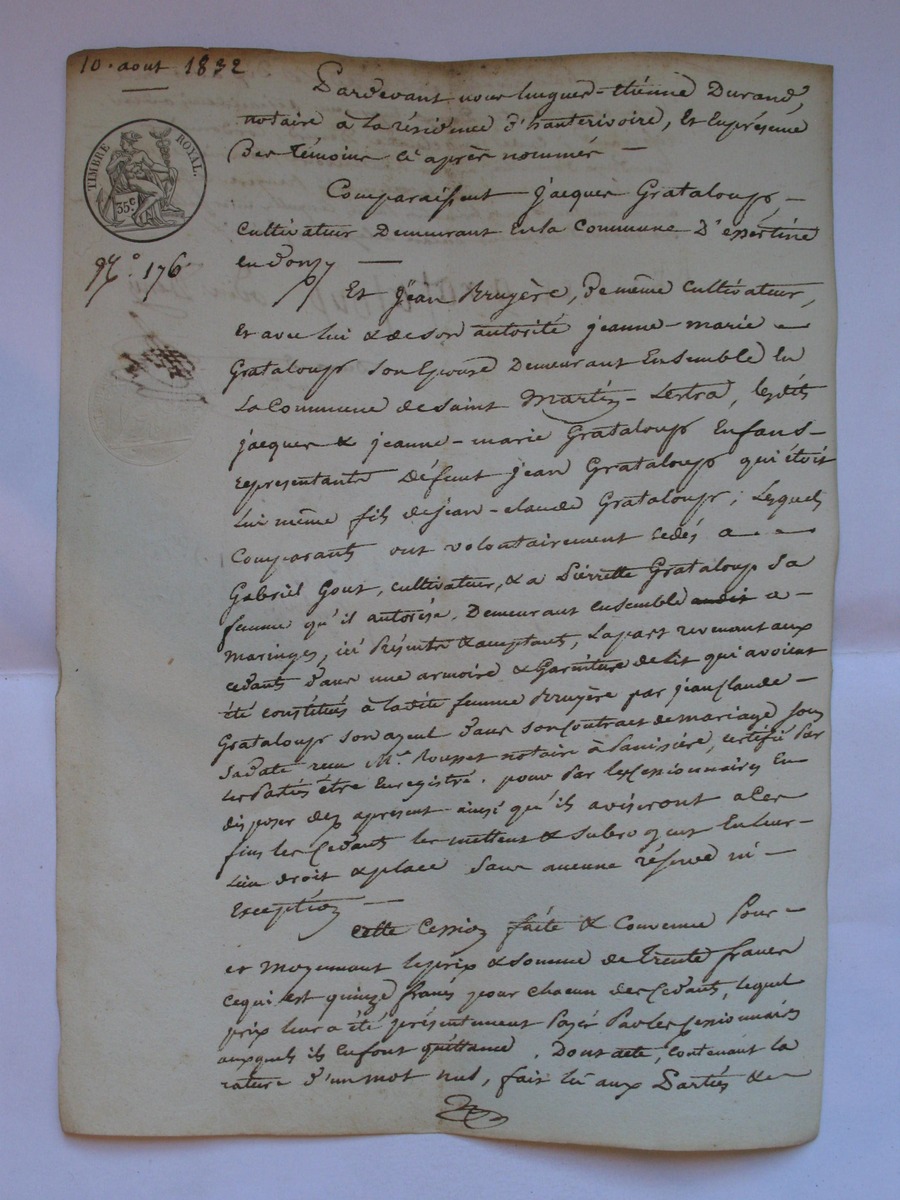 10. aout 1832
Pardevant nous hugues-étienne Durand,
notaire à la résidence d'hauterivoire, Et En présence
Des Témoins ci après nommés —
TIMBRE ROYAL.
35 c
Comparaissent jacques Grataloup, —
Cultivateur Demeurant En la Commune D'essertine
en donzy —
N.º 176
Et Jean Bruyère, de même Cultivateur,
Et avec lui & de son autorité jeanne-marie —
Grataloup son Epouse Demeurant Ensemble En
La Commune de Saint Martin-Lestra, lesdits
jacques & jeanne-marie Grataloup Enfans-
représentants Défunt jean Grataloup qui étoit
Lui même fils de jean-claude Grataloup; Lesquels
Comparants ont volontairement cédés a — —
Gabriel Gout, cultivateur, & a Pierrette Grataloup Sa
femme qu'il autorise, Demeurant ensemble a —
Maringes, ici Présents & acceptants, La part revenant aux
cédants dans une armoire & Garniture de lit qui avoient
été constitués à ladite femme Bruyère par jean Claude —
Grataloup son ayeul dans son Contract de mariage sous
Sa date reçu Me. Rousset notaire à Panissière, certifié Par
les Parties être Enregistré. pour Par les Cessionnaires En
disposer dez apresent ainsi qu'ils aviseront a Ces
fins les Cédants les mettent & subrogent En leur —
Lieu droit & place Sans aucune réserve ni —
Exception —
Cette Cession faite & Convenue Pour —
et Moyennant le prix & somme de Trente francs
Ce qui est quinze francs pour chacun des Cédants, lequel
prix leur a été présentement Payé Par les Cessionnaires
auxquels ils En font quittance. Dont acte, Contenant la
rature d'un mot nul, fait lu aux Parties & —